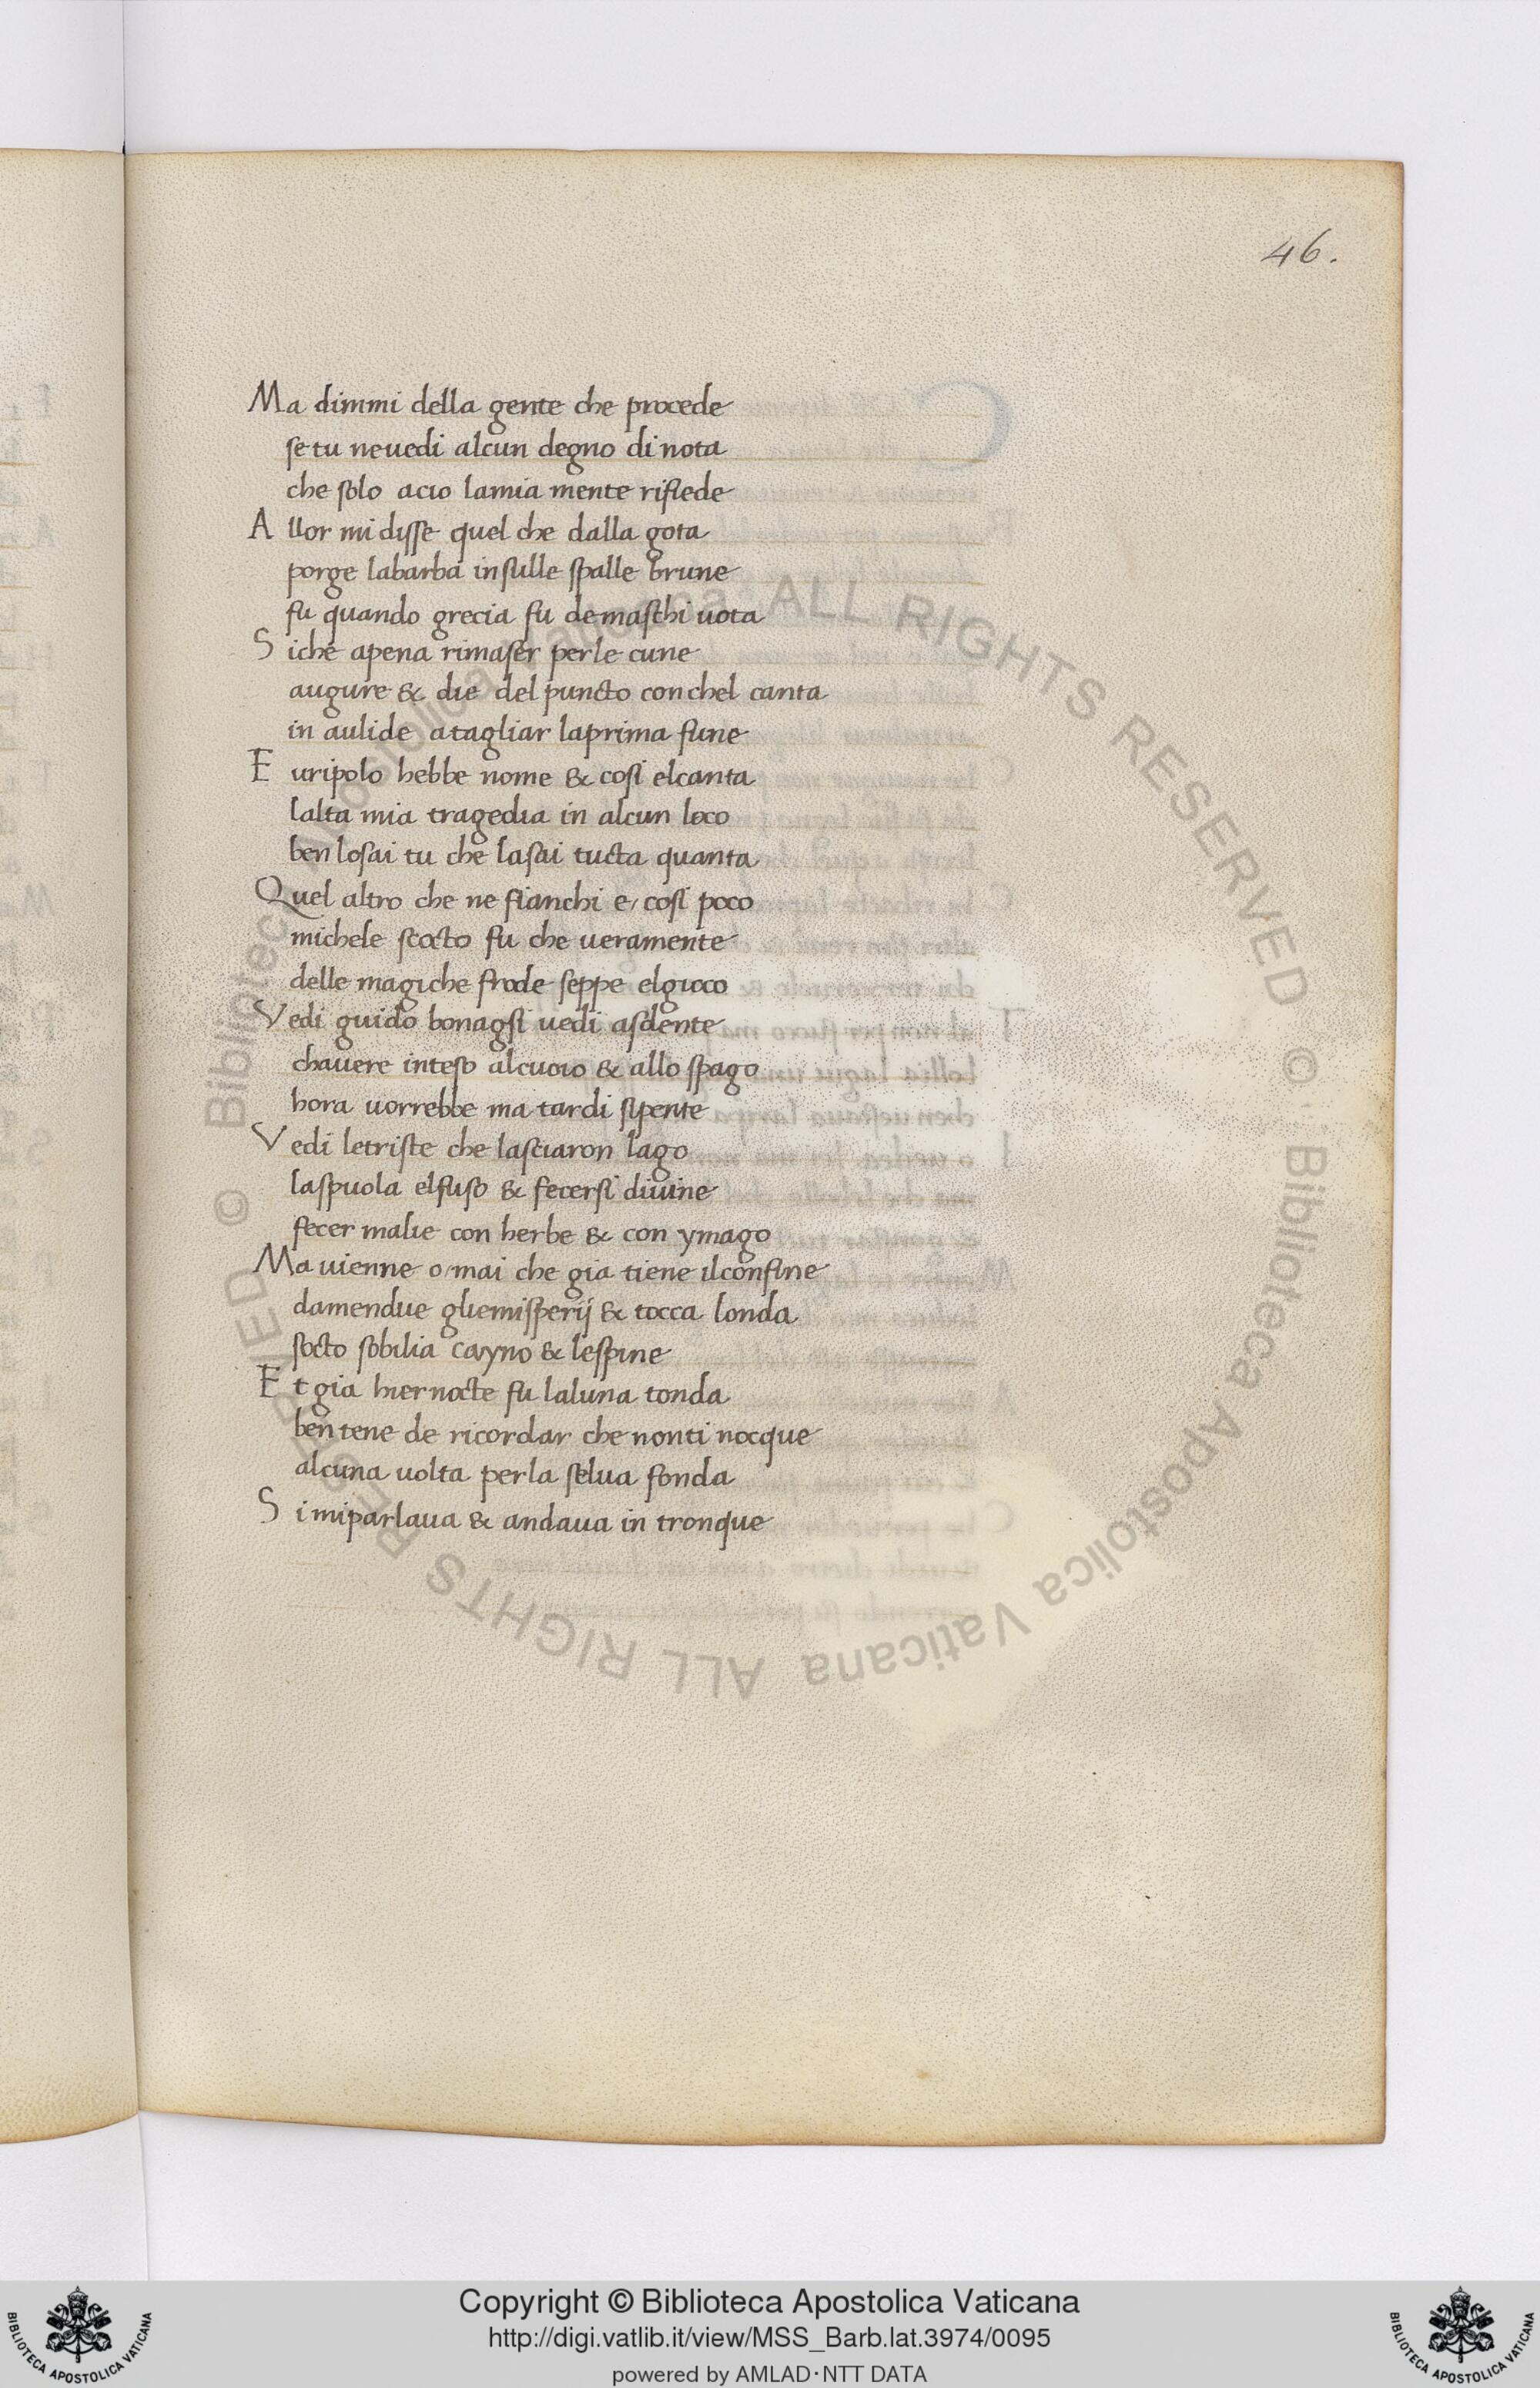 46.
Ma dimmi della gente che procede
se tu neuedi alcun degno di nota
che solo acio lamia mente rifiede
A llor mi disse quel che dalla gota
porge labarba insulle spalle brune
fu quando grecia fu demaschi uota
S iche apena rimaser perle cune
augure & die del puncto conchel canta
in aulide atagliar laprima fune
E uripolo hebbe nome & cosi elcanta
lalta mia tragedia in alcun loco
ben losai tu che lasai tucta quanta
Quel altro che ne fianchi e, cosi poco
michele scocto fu che ueramente
delle magiche frode seppe elgioco
Vedi guido bonagsi uedi asdente
chauere inteso alcuoio & allo spago
hora uorrebbe ma tardi sipente
Vedi letriste che lasciaron lago
laspuola elfuso & fecersi diuine
fecer malie con herbe & con ymago
Ma uienne o, mai che gia tiene ilconfine
damendue gliemisperij & tocca londa
socto sobilia cayno & lespine
E t gia hiernocte fu laluna tonda
ben tene de ricordar che nonti nocque
alcuna uolta perla selua fonda
S i miparlaua & andaua in tronque
© Biblioteca Apostolica Vaticana ALL RIGHTS RESERVED © Biblioteca Apostolica Vaticana ALL RIGHTS RESERVED
Copyright © Biblioteca Apostolica Vaticana
http://digi.vatlib.it/view/MSS_Barb.lat.3974/0095
powered by AMLAD·NTT DATA
BIBLIOTECA APOSTOLICA VATICANA
BIBLIOTECA APOSTOLICA VATICANA